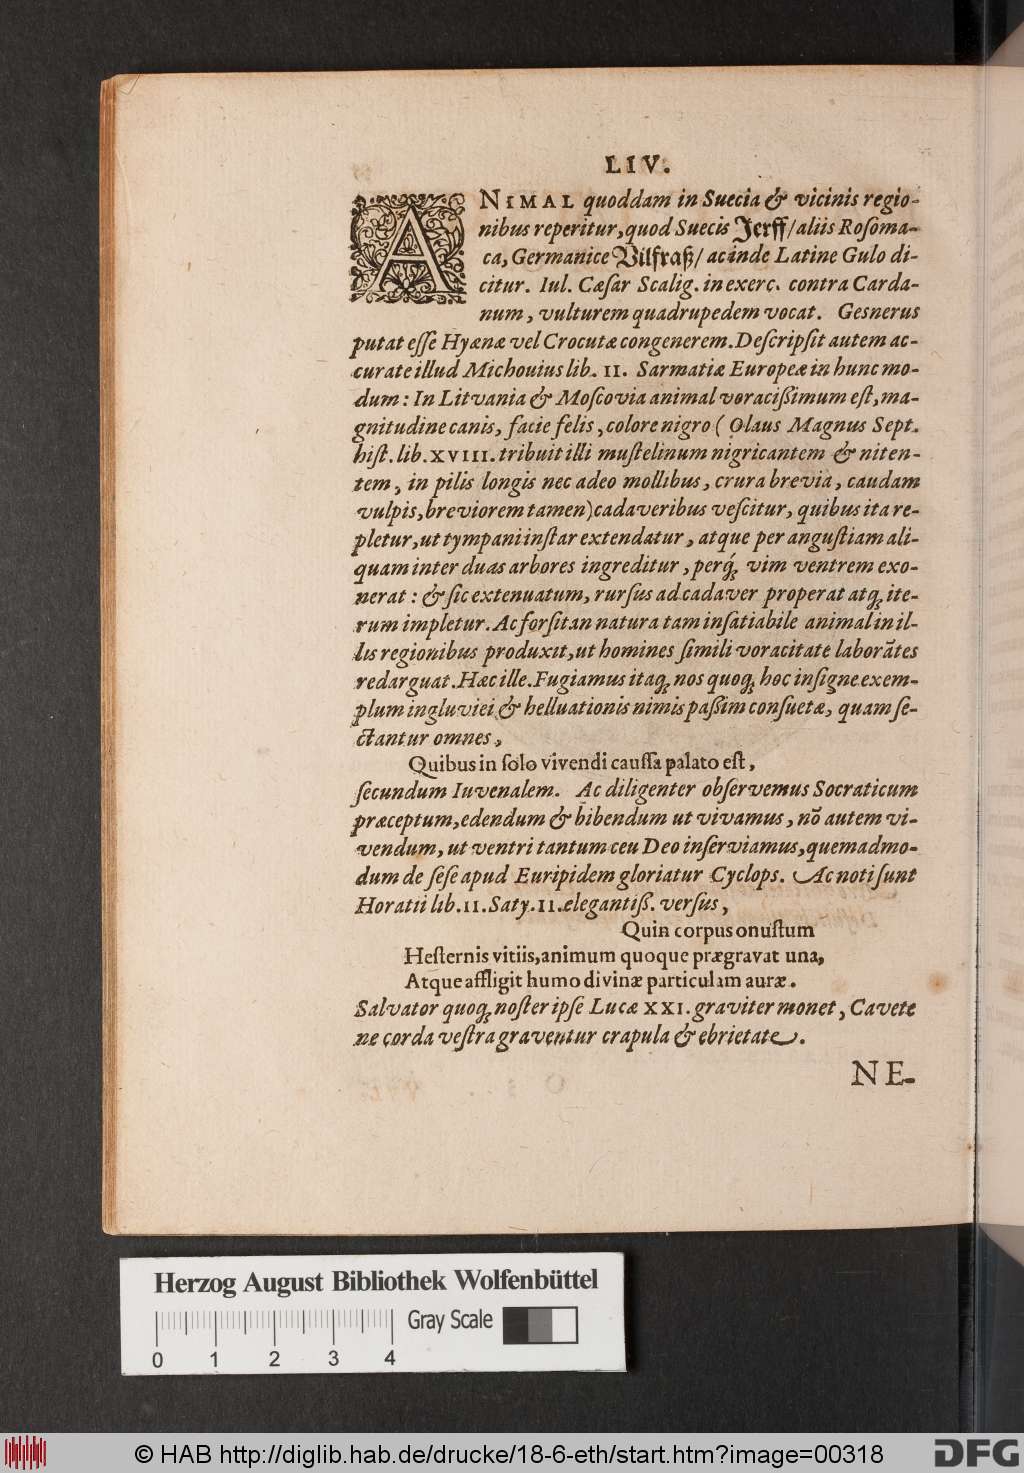 LIV.
ANIMAL quoddam in Suecia & vicinis regio-
nibus reperitur, quod Suecis Jerff / aliis Roſoma-
ca, Germanice Vilfraß / ac inde Latine Gulo di-
citur. Iul. Cæſar Scalig. in exerc. contra Carda-
num, vulturem quadrupedem vocat. Geſnerus
putat eſſe Hyænæ vel Crocutæ congenerem. Deſcripſit autem ac-
curate illud Michovius lib. II. Sarmatiæ Europeæ in hunc mo-
dum: In Litvania & Moſcovia animal voraciſſimum eſt, ma-
gnitudine canis, facie felis, colore nigro (Olaus Magnus Sept.
hiſt. lib. XVIII. tribuit illi muſtelinum nigricantem & niten-
tem, in pilis longis nec adeo mollibus, crura brevia, caudam
vulpis, breviorem tamen) cadaveribus veſcitur, quibus ita re-
pletur, ut tympani inſtar extendatur, atque per anguſtiam ali-
quam inter duas arbores ingreditur, perq́; vim ventrem exo-
nerat: & ſic extenuatum, rurſus ad cadaver properat atq; ite-
rum impletur. Ac forſitan natura tam inſatiabile animal in il-
lis regionibus produxit, ut homines ſimili voracitate laborãtes
redarguat. Hæc ille. Fugiamus itaq; nos quoq; hoc inſigne exem-
plum ingluviei & helluationis nimis paſſim conſuetæ, quam ſe-
ctantur omnes,
Quibus in ſolo vivendi cauſſa palato eſt,
ſecundum Iuvenalem. Ac diligenter obſervemus Socraticum
præceptum, edendum & bibendum ut vivamus, nõ autem vi-
vendum, ut ventri tantum ceu Deo inſerviamus, quemadmo-
dum de ſeſe apud Euripidem gloriatur Cyclops. Ac noti ſunt
Horatii lib. II. Saty. II. elegantiſſ. verſus,
Quin corpus onuſtum
Heſternis vitiis, animum quoque prægravat una,
Atque affligit humo divinæ particulam auræ.
Salvator quoq; noſter ipſe Lucæ XXI. graviter monet, Cavete
ne corda veſtra graventur crapula & ebrietate.
NE-
Herzog August Bibliothek Wolfenbüttel
Gray Scale
0 1 2 3 4
© HAB http://diglib.hab.de/drucke/18-6-eth/start.htm?image=00318
DFG